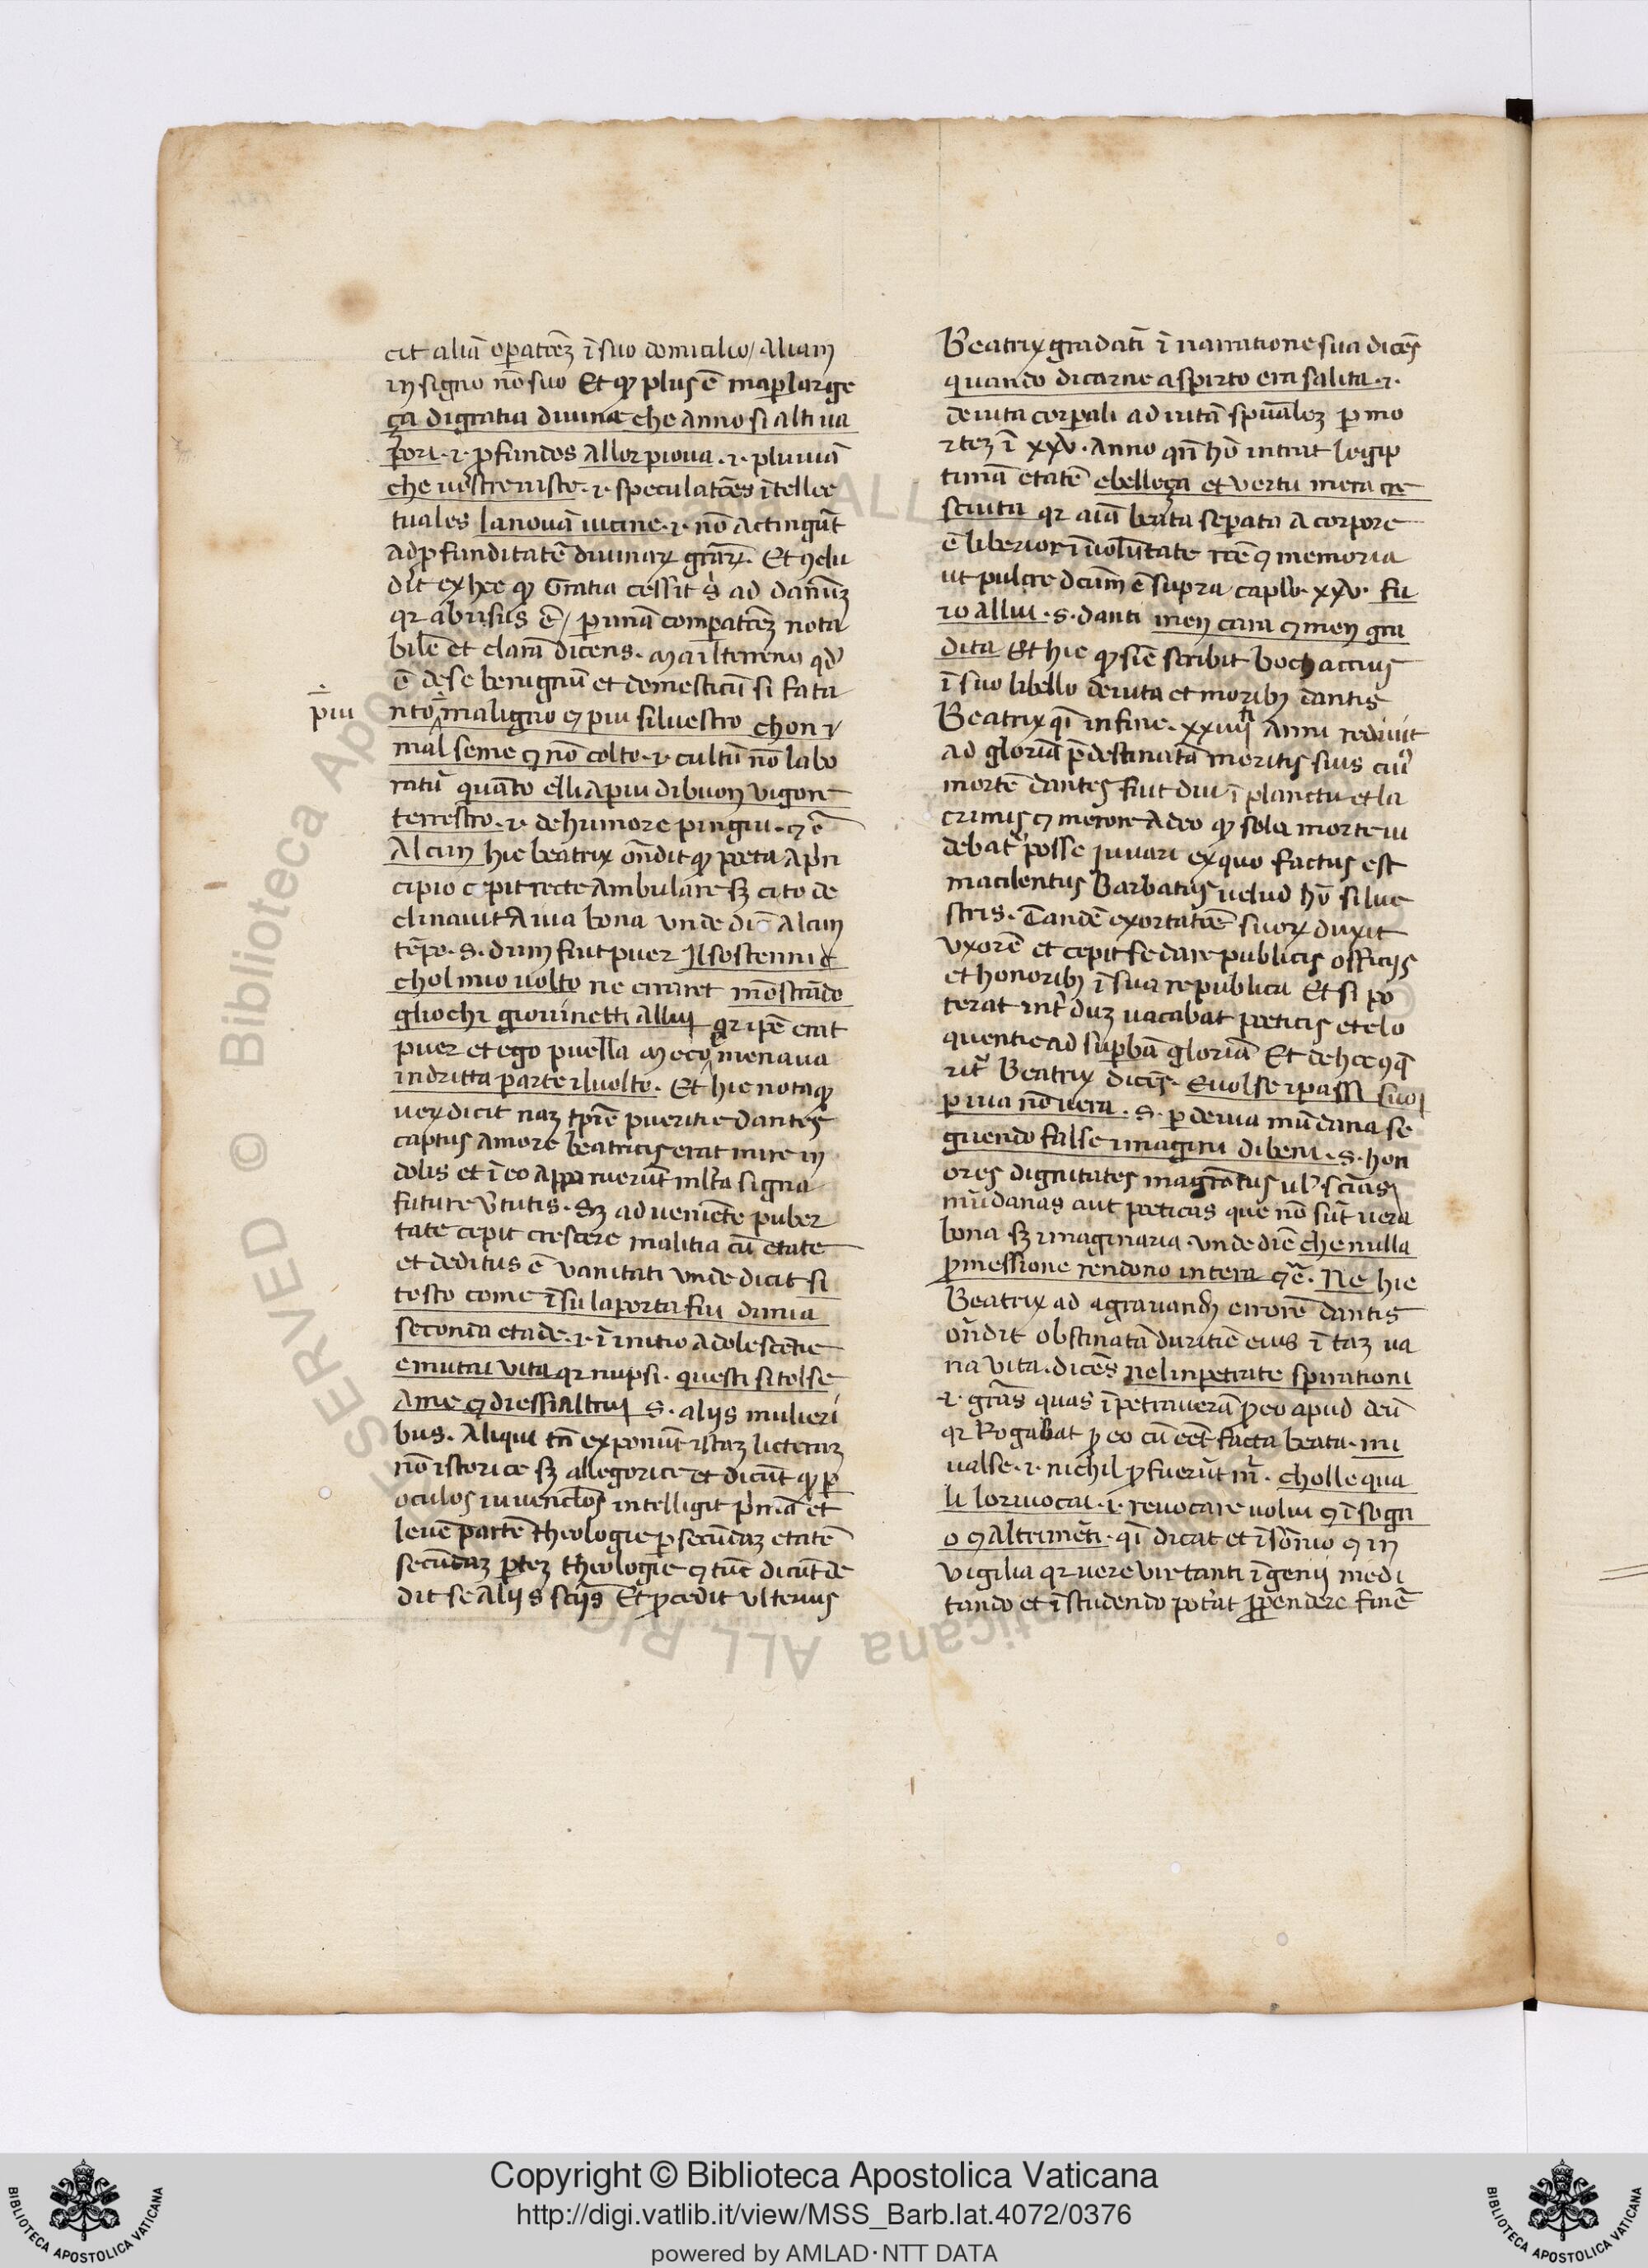 cit aliā operatōeȝ ī suo domicilio / Aliam
in signo nō suo Et qꝫ plus ē ma per largeç
ça di gratia divina che anno si alti va
pori .i. profundos allor piova .i. pluviā
che nostre viste .i. speculatōes ītellec
tuales la no vā vicine .i. nō actingūt
ad profunditatē divinarꝫ grārꝫ. Et ꝯclu
dit ex hoc qꝫ Gratia cessit s ad damnūȝ
qr abusus ē / per unā comperatōeȝ nota
bilē et clarā dicens. Ma il terreno qd
ē de se benignū et domesticū si fa ta
nto maligno e piu silvestro chon il
piu
mal seme e nō colto .i. cultū nō labo
ratū quanto elli a piu di buon vigore
terrestro .i. de humore pingui . ꝯ ē
Alcun hic beatrix ondit qꝫ poeta a prin
cipio cepit recte ambulare sȝ cito de
clinavit a via bona unde dic Alcun
tēpo .s. dum fuit puer Il sostenni
chol mio volto ne erraret mostrādo
gli ochi giovinetti allui qr ipē erat
puer et ego puella Meco menava
in dritta parte il volto. Et hic nota qꝫ
verꝫ dicit naȝ tprē pueritie dantes
captus amore beatricis erat mire in
dolis et ī eo apparuerūt mlta signa
future virtutis. Sȝ adveniēte puber
tate cepit crescere malitia cū etate
et deditus ē vanitati unde dicit si
tosto come ī su la porta fui di mia
seconda etade .i. ī initio adolescētie
e mutai vita qr nupsi . questi si tolse
a me e diessi Altrui .s. alijs mulieri
bus. Aliqui tn exponūt istaȝ licteraȝ
nō istorice sȝ allegorice et dicūt qꝫ per
oculos iuvenctos intelligit primā et
levē partē theologie per secundaȝ etatē
secūdaȝ parteȝ theologie e tūc dicūt de
dit se Alijs sciis Et procedit ulterius
Beatrix gradatī ī narratione sua dicēs
quando di carne a spirto era salita .i.
de vita corporali ad vitā spūaleȝ per mo
rteȝ ī xxv. Anno qn hō intrat legip
timā etatē e belleça et vertu mera cre
sciuta qr aīa beata separata a corpore
ē liberior ī volūtate rōe e memoria
ut pulcre dcūm ē supra caplo. xxv. fu
io allui .s. danti men cara e men gra
dita Et hic qꝫ sic scribit Bochaccius
ī suo libello de vita et moribꝫ dantis
Beatrix qī in fine . xxiiij anni redivit
ad gloriā predestinatā meritis suis cuiꝫ
mortē dantes fuit diu ī planctu et la
crimis e merore adeo qꝫ sola morte vi
debatr posse juvari ex quo factus est
macilentus Barbatus velud hō silve
stris. Tandē exortatōe suorꝫ duxit
uxorē et cepit se dare publicis officijs
et honoribꝫ ī sua republica Et si po
terat int duȝ vacabat poeticis et elo
quentie ad superbā gloriā Et de hoc ꝯque
ritr Beatrix dicēs. E volse i passi suoi
per via nō vera .s. per de via mūdana se
guendo false imagini di beni .s. hon
ores dignitates magratus ul scias
mūdanas aut poeticas que nō sūt vera
bona sȝ imaginaria . unde dic che nulla
promessione rendono intera ꝯ ē. Ne hic
Beatrix ad agravandꝫ errorē dantis
ōndit obstinatā duritiē eius ī taȝ va
na vita . dicēs nel inpetrate spirationi
.i. grās quas īpetraverā pro eo apud deū
qr Rogabat pro eo cū eēt facta beata . mi
valse .i. nichil profuerūt m. cholle qua
li lo rivocai .i. revocare volui e ī sogn
o e Altrimēti . qī dicat et ī sōnio e in
vigilia qr vere vir tanti īgenij medi
tando et ī studendo potat perpendere finē
Copyright © Biblioteca Apostolica Vaticana
http://digi.vatlib.it/view/MSS_Barb.lat.4072/0376
powered by AMLAD · NTT DATA
BIBLIOTECA APOSTOLICA VATICANA
BIBLIOTECA APOSTOLICA VATICANA